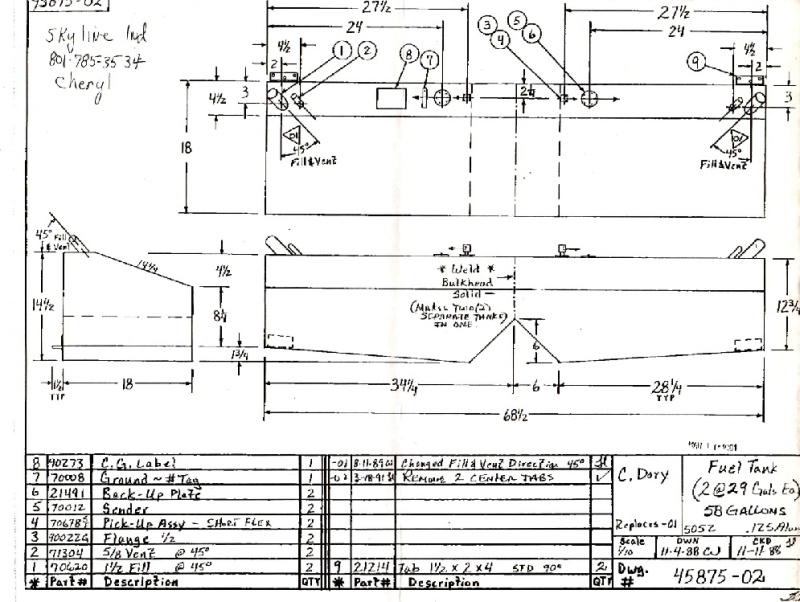 45875-02
Skyline Ind
801-785-3534
Cheryl
27 1/2
24
4 1/2
2
1
2
8
7
3
4
5
6
27 1/2
24
4 1/2
2
9
4 1/2
3
3
18
45°
Fill & Vent
45°
Fill & Vent
45° Fill & Vent
14 1/4
4 1/2
14 1/2
8 1/4
1 3/4
TYP
18
* Weld *
Bulkhead
Solid -
(Makes Two (2)
SEPARATE TANKS)
IN ONE.
12 3/4
6
34 1/4
6
28 1/4
TYP
68 1/2
8 90273 C.G. Label 1
7 70008 Ground ~ # Tag 1
6 21491 Back-Up Plate 2
5 70012 Sender 2
4 Pick-Up Assy - SHORT FLEX 2
3 90022G Flange 1/2 2
2 71304 5/8 Vent @ 45° 2
1 70620 1 1/2 Fill @ 45° 2
* Part# Description QTY
-01 8-11-89 Changed Fill & Vent Direction 45°
-02 REMOVE 2 CENTER TABS
9 21214 Tab 1 1/2 x 2 x 4 STD 90° 2
* Part# Description QTY
C. Dory
Replaces -01
Fuel Tank
(2 @ 29 Gals Ea)
58 GALLONS
5052 .125 Alum
Scale 1/10
DWN 11-4-88 CW
CKD 11-11-88
Dwg. # 45875-02